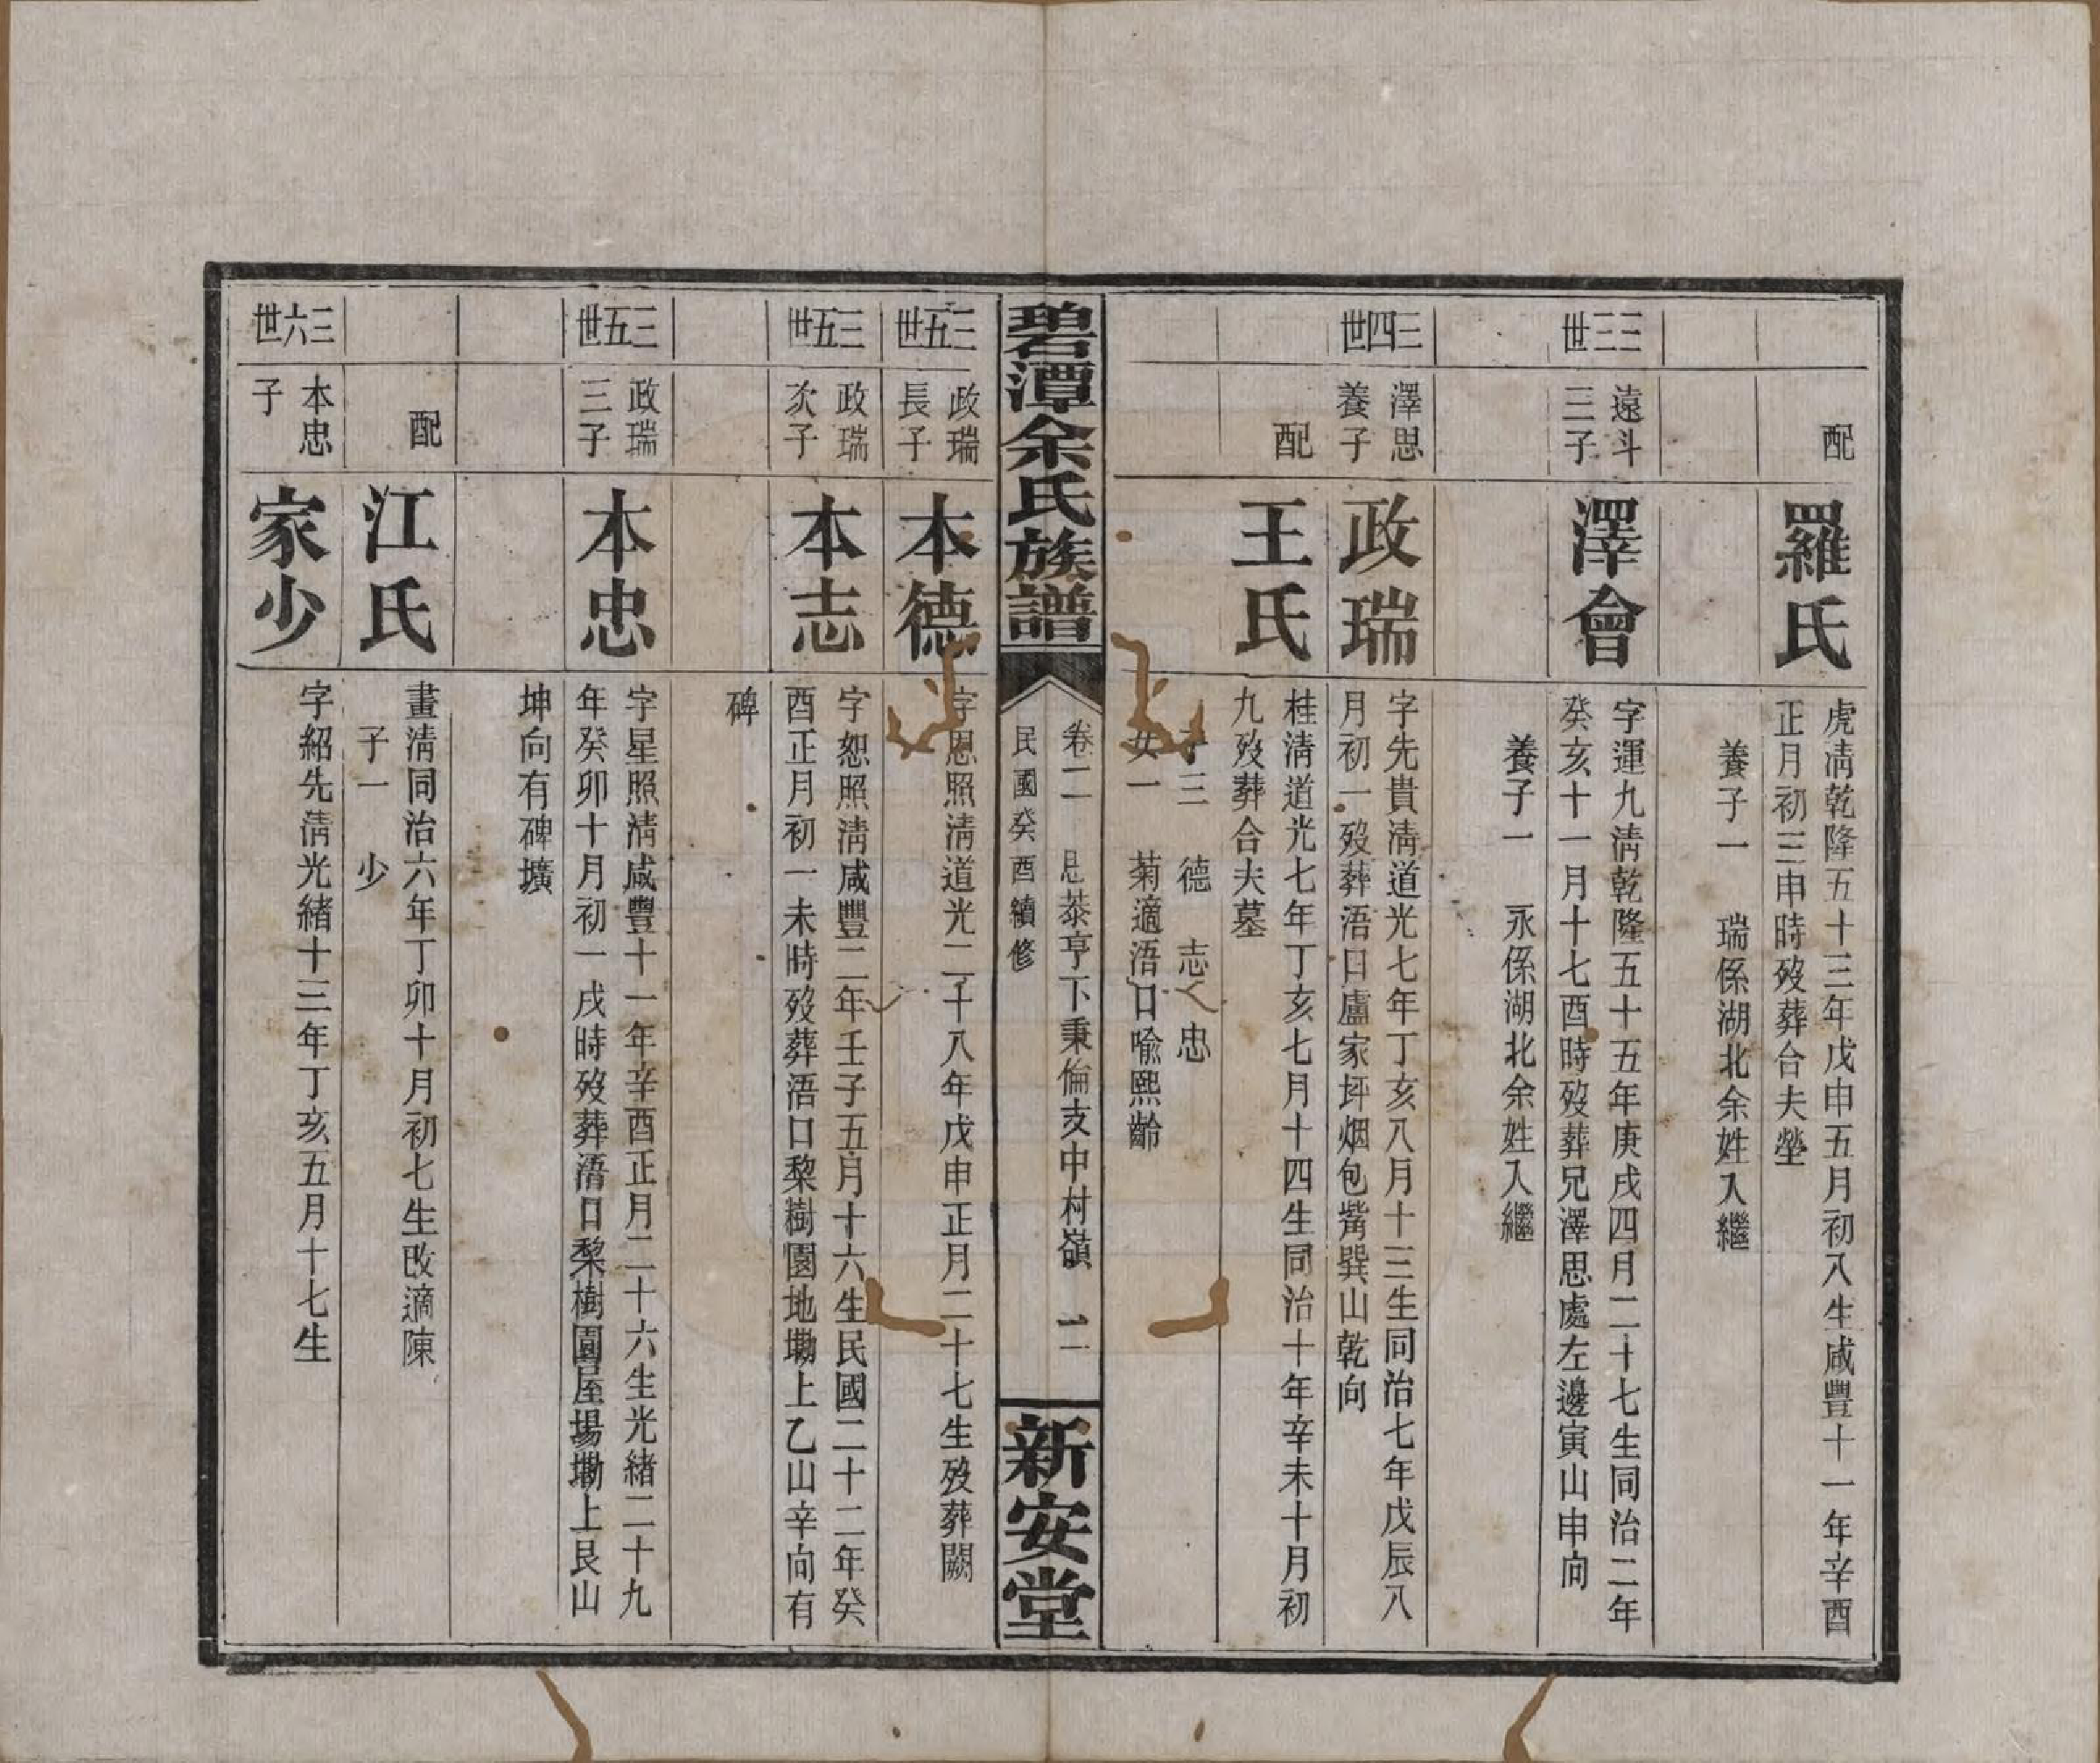 配
羅氏
虎清乾隆五十三年戊申五月初八生咸豐十一年辛酉
正月初三申時歿葬合夫塋
養子一 瑞係湖北余姓入繼
三三世
遠斗
三子
澤會
字運九清乾隆五十五年庚戌四月二十七生同治二年
癸亥十一月十七酉時歿葬兄澤思處左邊寅山申向
養子一 永係湖北余姓入繼
三四世
澤思
養子
政瑞
字先貴清道光七年丁亥八月十三生同治七年戊辰八
月初一歿葬浯口盧家坪烟包嘴巽山乾向
配
王氏
桂清道光七年丁亥七月十四生同治十年辛未十月初
九歿葬合夫墓
子三 德 志 忠
女一 菊適浯口喻熙齡
碧潭余氏族譜
卷二 思恭亨下秉倫支中村嶺 二
民國癸酉續修
新安堂
三五世
政瑞
長子
本德
字恩照清道光二十八年戊申正月二十七生歿葬闕
三五世
政瑞
次子
本志
字恕照清咸豐二年壬子五月十六生民國二十二年癸
酉正月初一未時歿葬浯口棃樹園地塝上乙山辛向有
碑
三五世
政瑞
三子
本忠
字星照清咸豐十一年辛酉正月二十六生光緒二十九
年癸卯十月初一戌時歿葬浯口棃樹園屋場塝上艮山
坤向有碑壙
配
江氏
畫清同治六年丁卯十月初七生改適陳
子一 少
三六世
本忠
子
家少
字紹先清光緒十三年丁亥五月十七生